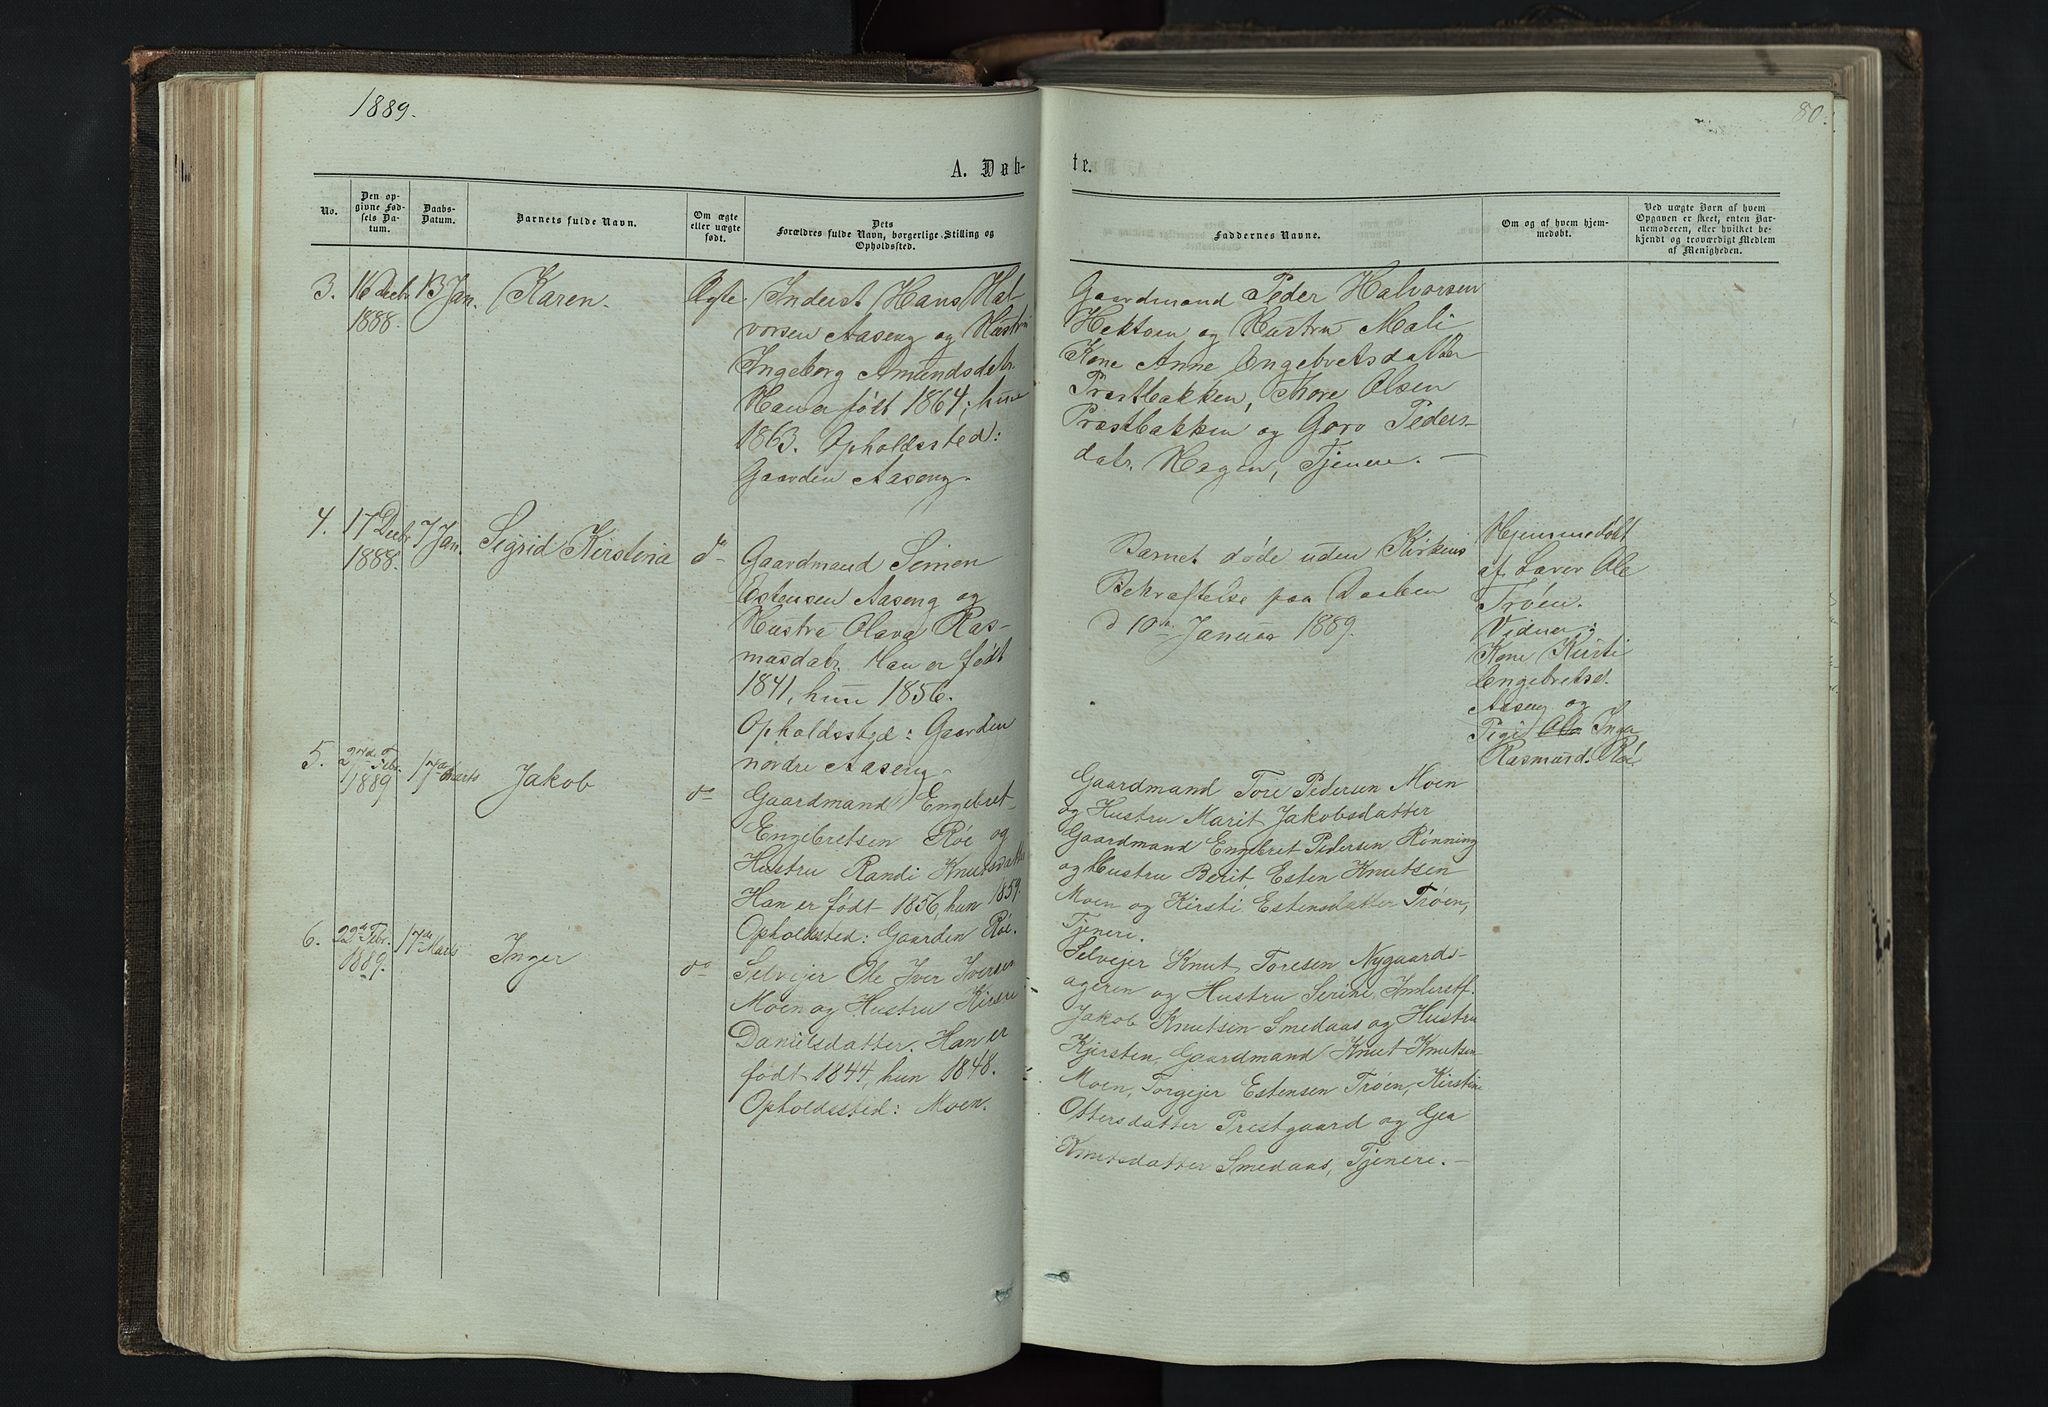 1889.
80.
A. Døb-
te.
No.
Den op-
givne Fød-
sels Da-
tum.
Daabs-
Datum.
Barnets fulde Navn.
Om ægte
eller uægte
født.
Dets
Forældres fulde Navn, borgerlige Stilling og
Opholdssted.
Faddernes Navne.
Om og af hvem hjem-
medøbt.
Ved uægte Børn af hvem
Opgaven er skeet, enten Bar-
nemoderen, eller hvilket be-
kjendt og troværdigt Medlem
af Menigheden.
3. 16 Decbr 13 Jan. Karen. Ægte
1888.
Inderst Hans Hal-
vorsen Aaseng og Hustru
Ingeborg Amundsdatr.
Han er født 1864, hun
1863. Opholdssted:
Gaarden Aaseng.
Gaardmand Peder Halvorsen
Hektoen og Hustru Mali
Kone Anne Engebretsdatter
Præstbakken, Thore Olsen
Præstbakken og Goro Peders-
datr. Hagen, Tjenere. —
4. 17 Decbr 7 Jan. Sigrid Kirstina do
1888.
Gaardmand Simen
Estensen Aaseng og
Hustru Olava Ras-
musdatr. Han er født
1841, hun 1856.
Opholdssted: Gaarden
nordre Aaseng.
Barnet døde uden Kirkens
Bekræftelse paa Daaben
d 10de Januar 1889.
Hjemmedøbt
af Lærer Ole
Trøen.
Vidner:
Kone Kirsti
Engebretsd.
Aaseng og
Pige Inga
Rasmusd. Røe.
5. 2nd Febr. 17de Marts Jakob do
1889
Gaardmand Engebret
Engebretsen Røe og
Hustru Randi Knutsdatter
Han er født 1856, hun 1859.
Opholdssted: Gaarden Røe.
Gaardmand Tore Pedersen Moen
og Hustru Marit Jakobsdatter
Gaardmand Engebret Pedersen Rønning
og Hustru Berit, Esten Knutsen
Moen og Kirsti Estensdatter Trøen,
Tjenere.
6. 22de Febr. 17de Marts Inger do
1889.
Selvejer Ole Iver Iversen
Moen og Hustru Kirsti
Danielsdatter. Han er
født 1844, hun 1848.
Opholdssted: Moen.
Selvejer Knut Toresen Nygaards-
ageren og Hustru Serine, Inderstf.
Jakob Knutsen Smedaas og Hustru
Kjersten, Gaardmand Knut Knutsen
Moen, Torgejer Estensen Trøen, Kirstine
Ottersdatter Prestgaard og Gea
Knutsdatter Smedaas, Tjenere. —